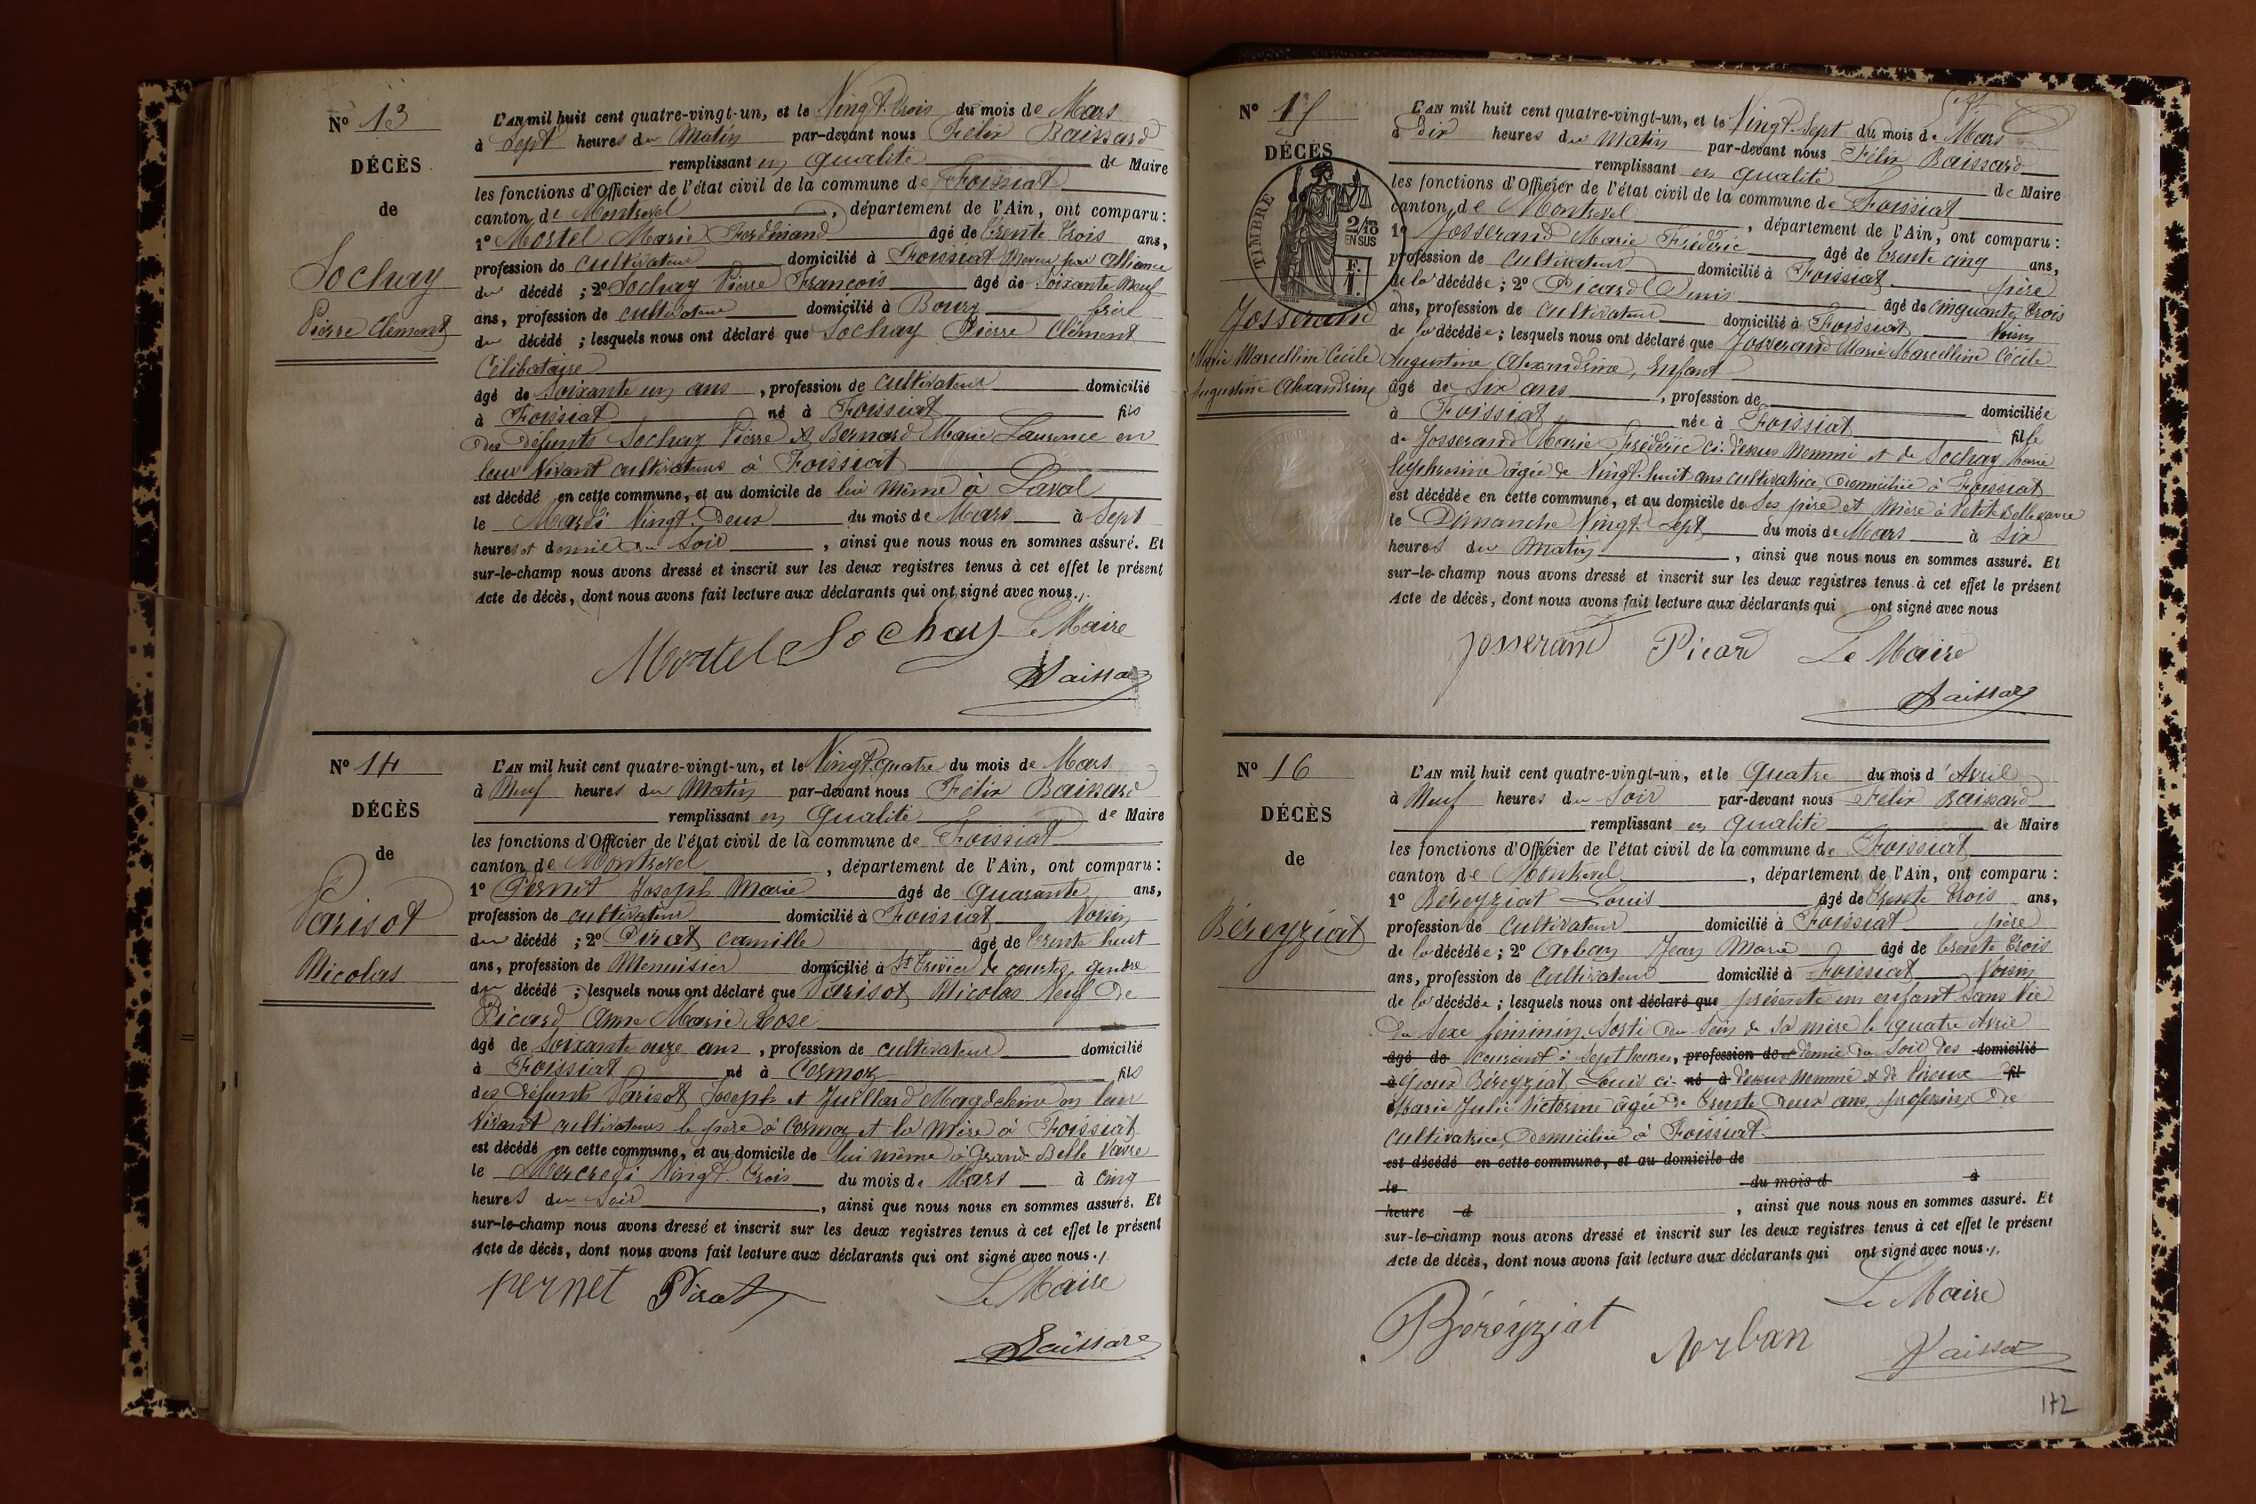 No 13
DÉCÈS
de
Sochay
Pierre Clément
L'AN mil huit cent quatre-vingt-un, et le Vingt-trois du mois de Mars
à Sept heures du Matin par-devant nous Félix Baissard
remplissant en qualité de Maire
les fonctions d'Officier de l'état civil de la commune de Foissiat
canton de Montrevel, département de l'Ain, ont comparu :
1o Mortel Marie Ferdinand âgé de trente trois ans,
profession de cultivateur domicilié à Foissiat Neveu par alliance
du décédé ; 2o Sochay Pierre François âgé de Soixante Neuf
ans, profession de cultivateur domicilié à Bourg frère
du décédé ; lesquels nous ont déclaré que Sochay Pierre Clément
Célibataire
âgé de Soixante un ans, profession de cultivateur domicilié
à Foissiat né à Foissiat fils
des défunts Sochay Pierre & Bernard Marie Laurence en
leur vivant cultivateurs à Foissiat
est décédé en cette commune, et au domicile de lui même à Laval
le Mardi Vingt-Deux du mois de Mars à Sept
heures et demie du Soir, ainsi que nous nous en sommes assuré. Et
sur-le-champ nous avons dressé et inscrit sur les deux registres tenus à cet effet le présent
Acte de décès, dont nous avons fait lecture aux déclarants qui ont signé avec nous.
Mortel Sochay Le Maire
Baissard
No 14
DÉCÈS
de
Parisot
Nicolas
L'AN mil huit cent quatre-vingt-un, et le Vingt-quatre du mois de Mars
à Neuf heures du Matin par-devant nous Félix Baissard
remplissant en qualité de Maire
les fonctions d'Officier de l'état civil de la commune de Foissiat
canton de Montrevel, département de l'Ain, ont comparu :
1o Pernet Joseph Marie âgé de quarante ans,
profession de cultivateur domicilié à Foissiat Voisin
du décédé ; 2o Pirat Camille âgé de trente huit
ans, profession de Menuisier domicilié à St Trivier de Courtes, gendre
du décédé ; lesquels nous ont déclaré que Parisot Nicolas Veuf de
Picard Anne Marie Rose
âgé de soixante onze ans, profession de cultivateur domicilié
à Foissiat né à Cormoz fils
des défunts Parisot Joseph et Juillard Magdeleine en leur
vivant cultivateurs le père à Cormoz et la Mère à Foissiat
est décédé en cette commune, et au domicile de lui même à Grand Belle Vavre
le Mercredi Vingt-trois du mois de Mars à cinq
heures du Soir, ainsi que nous nous en sommes assuré. Et
sur-le-champ nous avons dressé et inscrit sur les deux registres tenus à cet effet le présent
Acte de décès, dont nous avons fait lecture aux déclarants qui ont signé avec nous.
Pernet Pirat Le Maire
Baissard
No 15
DÉCÈS
TIMBRE
2/10
EN SUS
F.
1.
Josserand
Marie Marcelline Cécile
Augustine Alexandrine
L'AN mil huit cent quatre-vingt-un, et le Vingt-Sept du mois de Mars
à Dix heures du Matin par-devant nous Félix Baissard
remplissant en qualité de Maire
les fonctions d'Officier de l'état civil de la commune de Foissiat
canton de Montrevel, département de l'Ain, ont comparu :
1o Josserand Marie Frédéric âgé de trente cinq ans,
profession de Cultivateur domicilié à Foissiat père
de la décédée ; 2o Picard Denis âgé de cinquante trois
ans, profession de cultivateur domicilié à Foissiat Voisin
de la décédée ; lesquels nous ont déclaré que Josserand Marie Marcelline Cécile
Augustine Alexandrine, Enfant
âgé de six ans, profession de domiciliée
à Foissiat née à Foissiat fille
de Josserand Marie Frédéric ci-dessus Nommé et de Sochay Marie
Euphrosine âgée de Vingt-huit ans cultivatrice, Domiciliée à Foissiat
est décédée en cette commune, et au domicile de Ses père et Mère à Petit Bellevavre
le Dimanche Vingt-Sept du mois de Mars à Six
heures du Matin, ainsi que nous nous en sommes assuré. Et
sur-le-champ nous avons dressé et inscrit sur les deux registres tenus à cet effet le présent
Acte de décès, dont nous avons fait lecture aux déclarants qui ont signé avec nous
Josserand Picard Le Maire
Baissard
No 16
DÉCÈS
de
Béreyziat
L'AN mil huit cent quatre-vingt-un, et le Quatre du mois d'Avril
à Neuf heures du Soir par-devant nous Félix Baissard
remplissant en qualité de Maire
les fonctions d'Officier de l'état civil de la commune de Foissiat
canton de Montrevel, département de l'Ain, ont comparu :
1o Béreyziat Louis âgé de trente trois ans,
profession de Cultivateur domicilié à Foissiat père
de la décédée ; 2o Arban Jean Marie âgé de trente trois
ans, profession de Cultivateur domicilié à Foissiat Voisin
de la décédée ; lesquels nous ont déclaré que présenté un enfant sans Vie
du Sexe féminin, Sorti du Sein de Sa mère le quatre Avril
âgé de courant à Sept heures, profession de et demie du Soir des domicilié
à époux Béreyziat Louis ci- né à dessus Nommé & de fil
Marie Julie Victorine âgée de trente deux ans, profession de
cultivatrice, Domiciliée à Foissiat
est décédé en cette commune, et au domicile de
le du mois d à
heure d, ainsi que nous nous en sommes assuré. Et
sur-le-champ nous avons dressé et inscrit sur les deux registres tenus à cet effet le présent
Acte de décès, dont nous avons fait lecture aux déclarants qui ont signé avec nous.
Le Maire
Béreyziat Arban Baissard
172